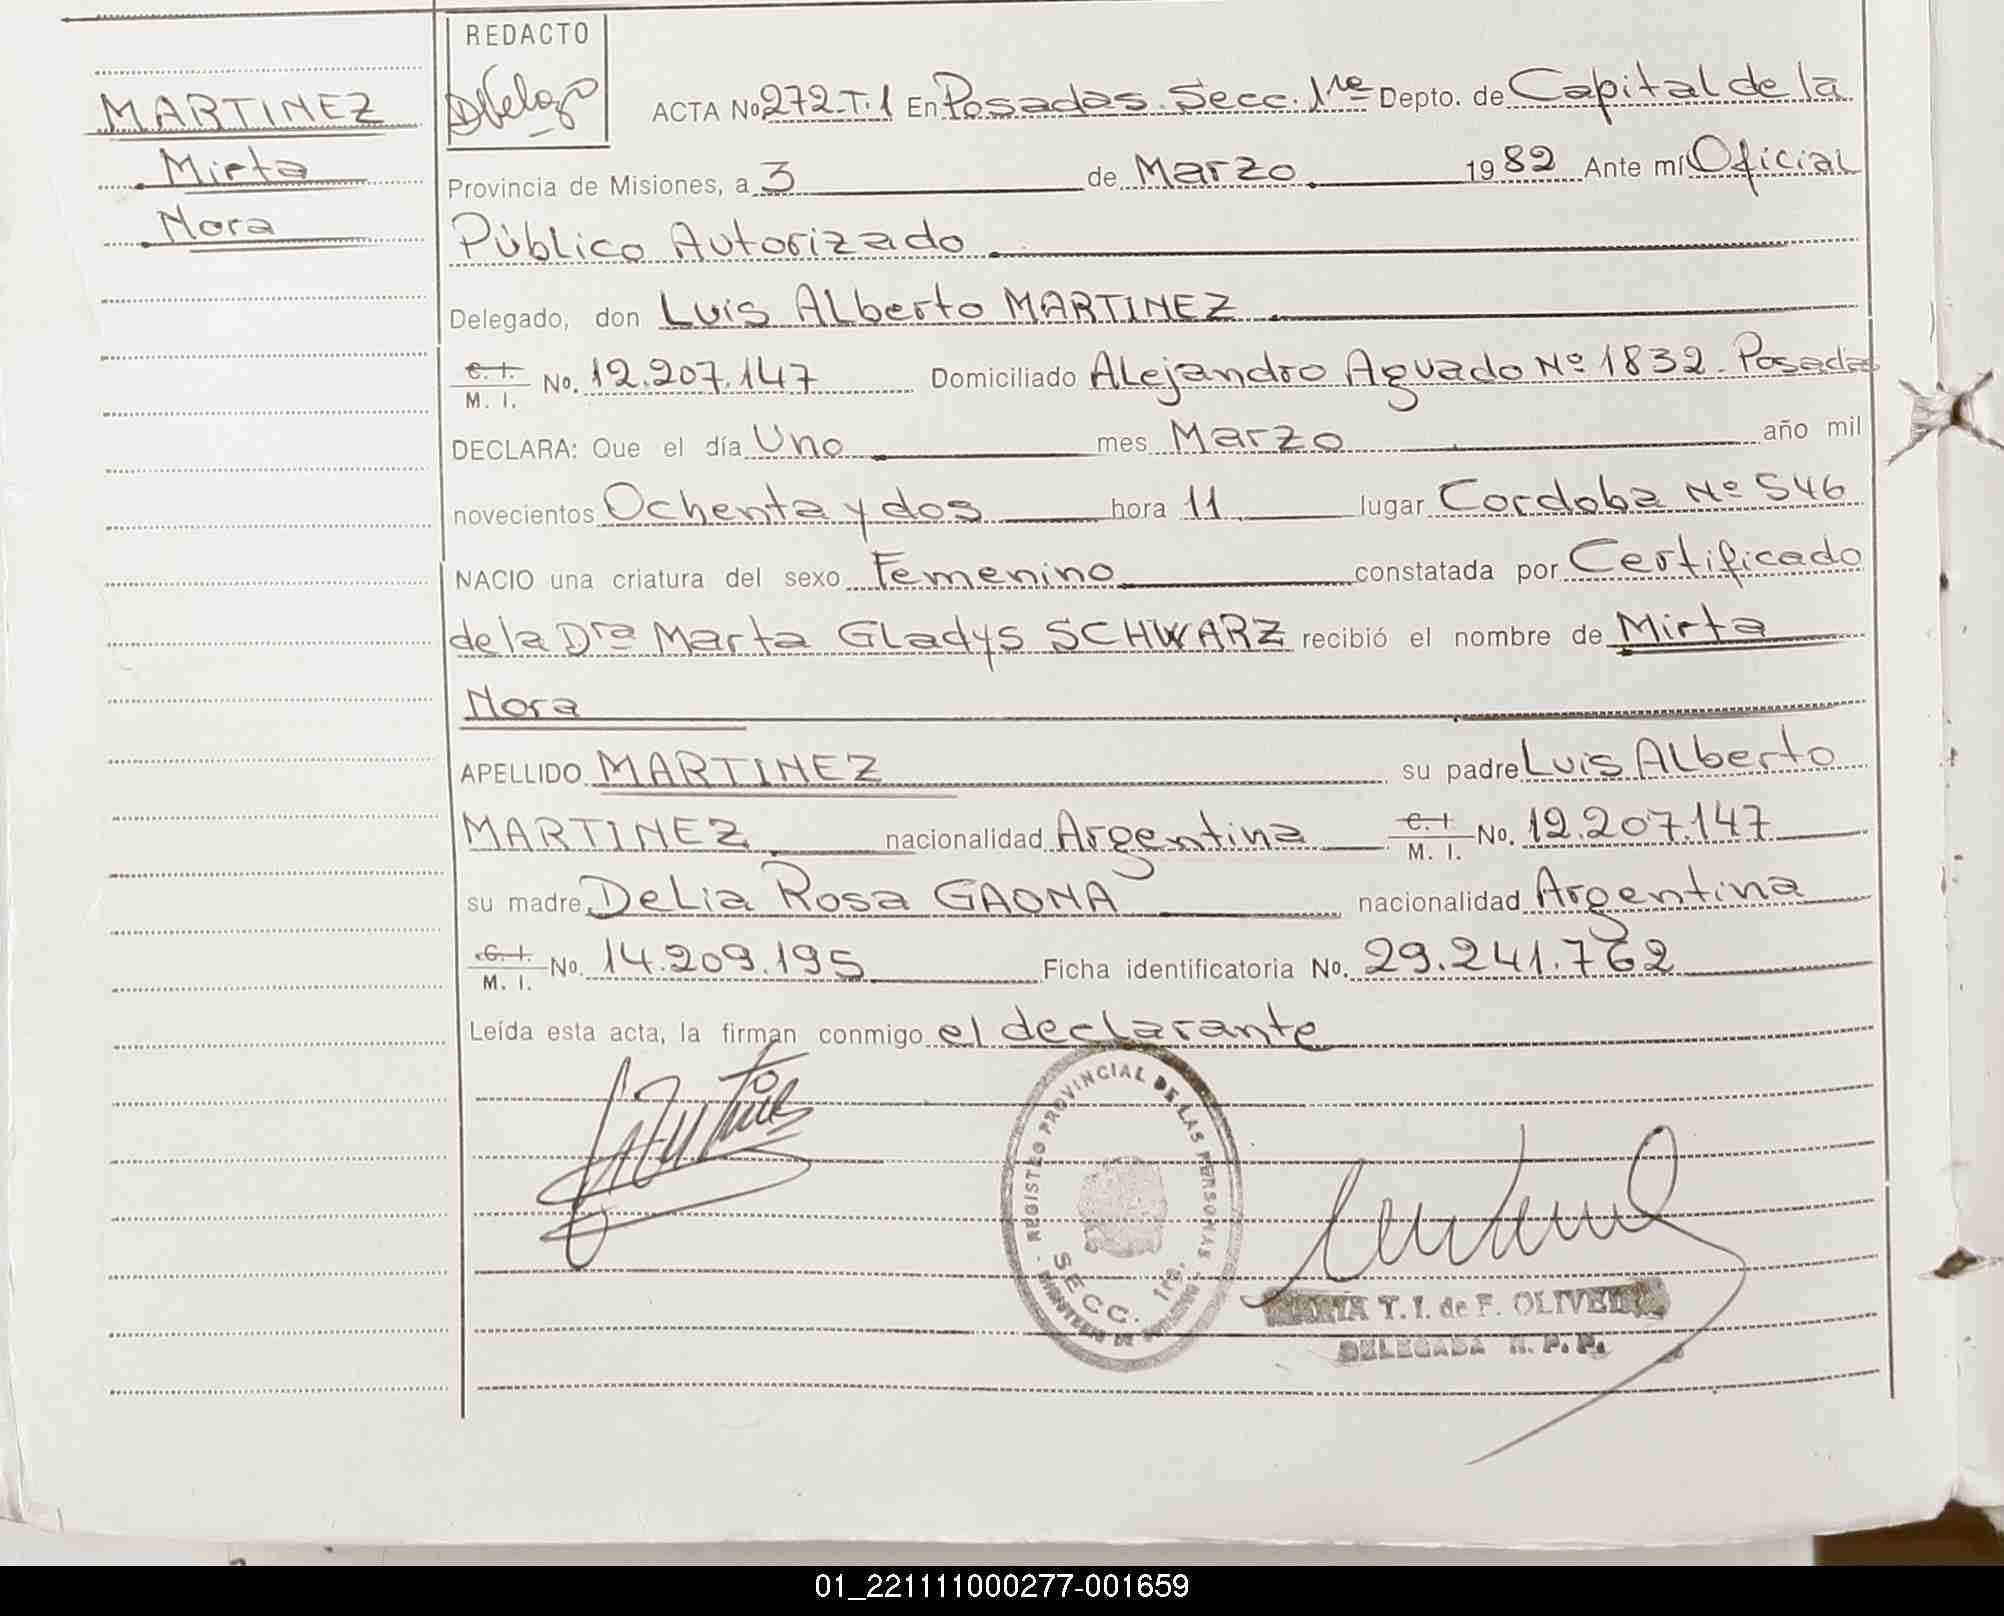 REDACTO
MARTINEZ
Mirta
Nora
ACTA No 272-T.1 En Posadas. Secc. 1ra Depto. de Capital de la
Provincia de Misiones, a 3 de Marzo 1982 Ante mí Oficial
Público Autorizado
Delegado, don Luis Alberto MARTINEZ
C. I. M. I. No. 12.207.147 Domiciliado Alejandro Aguado Nº 1832. Posadas
DECLARA: Que el día Uno mes Marzo año mil
novecientos Ochenta y dos hora 11 lugar Cordoba Nº 546
NACIO una criatura del sexo Femenino constatada por Certificado
de la Dra Marta Gladys SCHWARZ recibió el nombre de Mirta
Nora
APELLIDO MARTINEZ su padre Luis Alberto
MARTINEZ nacionalidad Argentina C. I. M. I. No. 12.207.147
su madre Delia Rosa GAONA nacionalidad Argentina
C. I. M. I. No. 14.209.195 Ficha identificatoria No. 29.241.762
Leída esta acta, la firman conmigo el declarante
REGISTRO PROVINCIAL DE LAS PERSONAS
SECC. 1ra.
T. I. de F. OLIVEIRA
DELEGADA R. P. P.
01_221111000277-001659